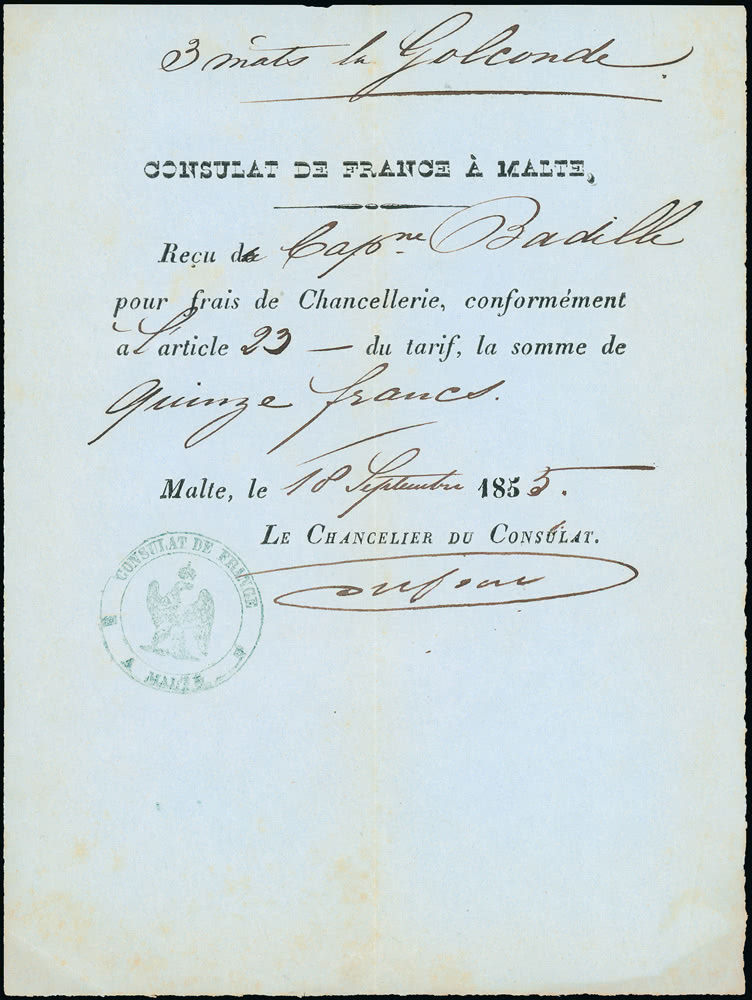 3 mâts la Golconde.
CONSULAT DE FRANCE À MALTE,
Reçu de Cap.ne Badille
pour frais de Chancellerie, conformément
à l'article 23 — du tarif, la somme de
quinze francs.
Malte, le 18 Septembre 1855.
LE CHANCELIER DU CONSULAT.
CONSULAT DE FRANCE
A MALTE